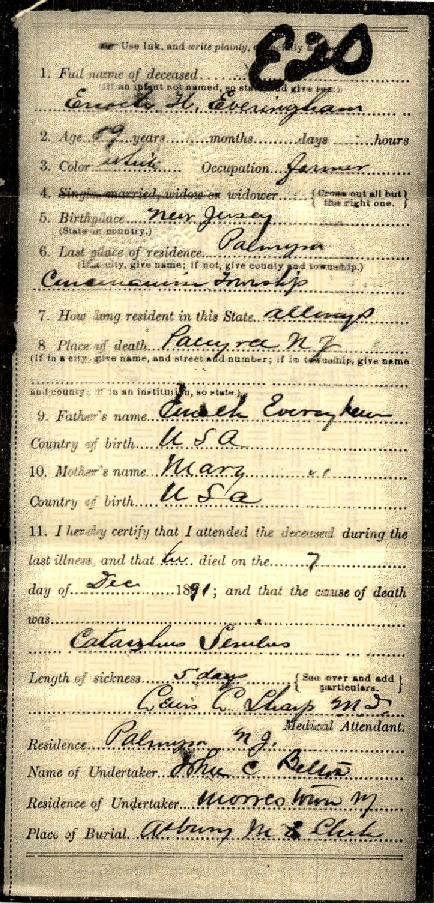 Use Ink, and write plainly,
E28
1. Full name of deceased
(If an infant not named, so state and give sex.)
Enoch H. Everingham
2. Age 89 years months days hours
3. Color White Occupation farmer
4. Single, married, widow or widower {Cross out all but the right one.}
5. Birthplace New Jersey
(State or country.)
6. Last place of residence Palmyra
(If a city, give name; if not, give county and township.)
Township
7. How long resident in this State. always
8 Place of death Palmyra N J
(If in a city, give name, and street and number; if in township, give name
and county; if in an institution, so state.)
9. Father's name Enoch Everingham
Country of birth U S A
10. Mother's name Mary "
Country of birth U S a
11. I hereby certify that I attended the deceased during the
last illness, and that he died on the 7
day of Dec 1891; and that the cause of death
was
Senilus
Length of sickness 5 days {See over and add particulars.}
C Sharp M.D.
Medical Attendant.
Residence Palmyra N J.
Name of Undertaker John C Belton
Residence of Undertaker Moorestown NJ
Place of Burial Asbury M E